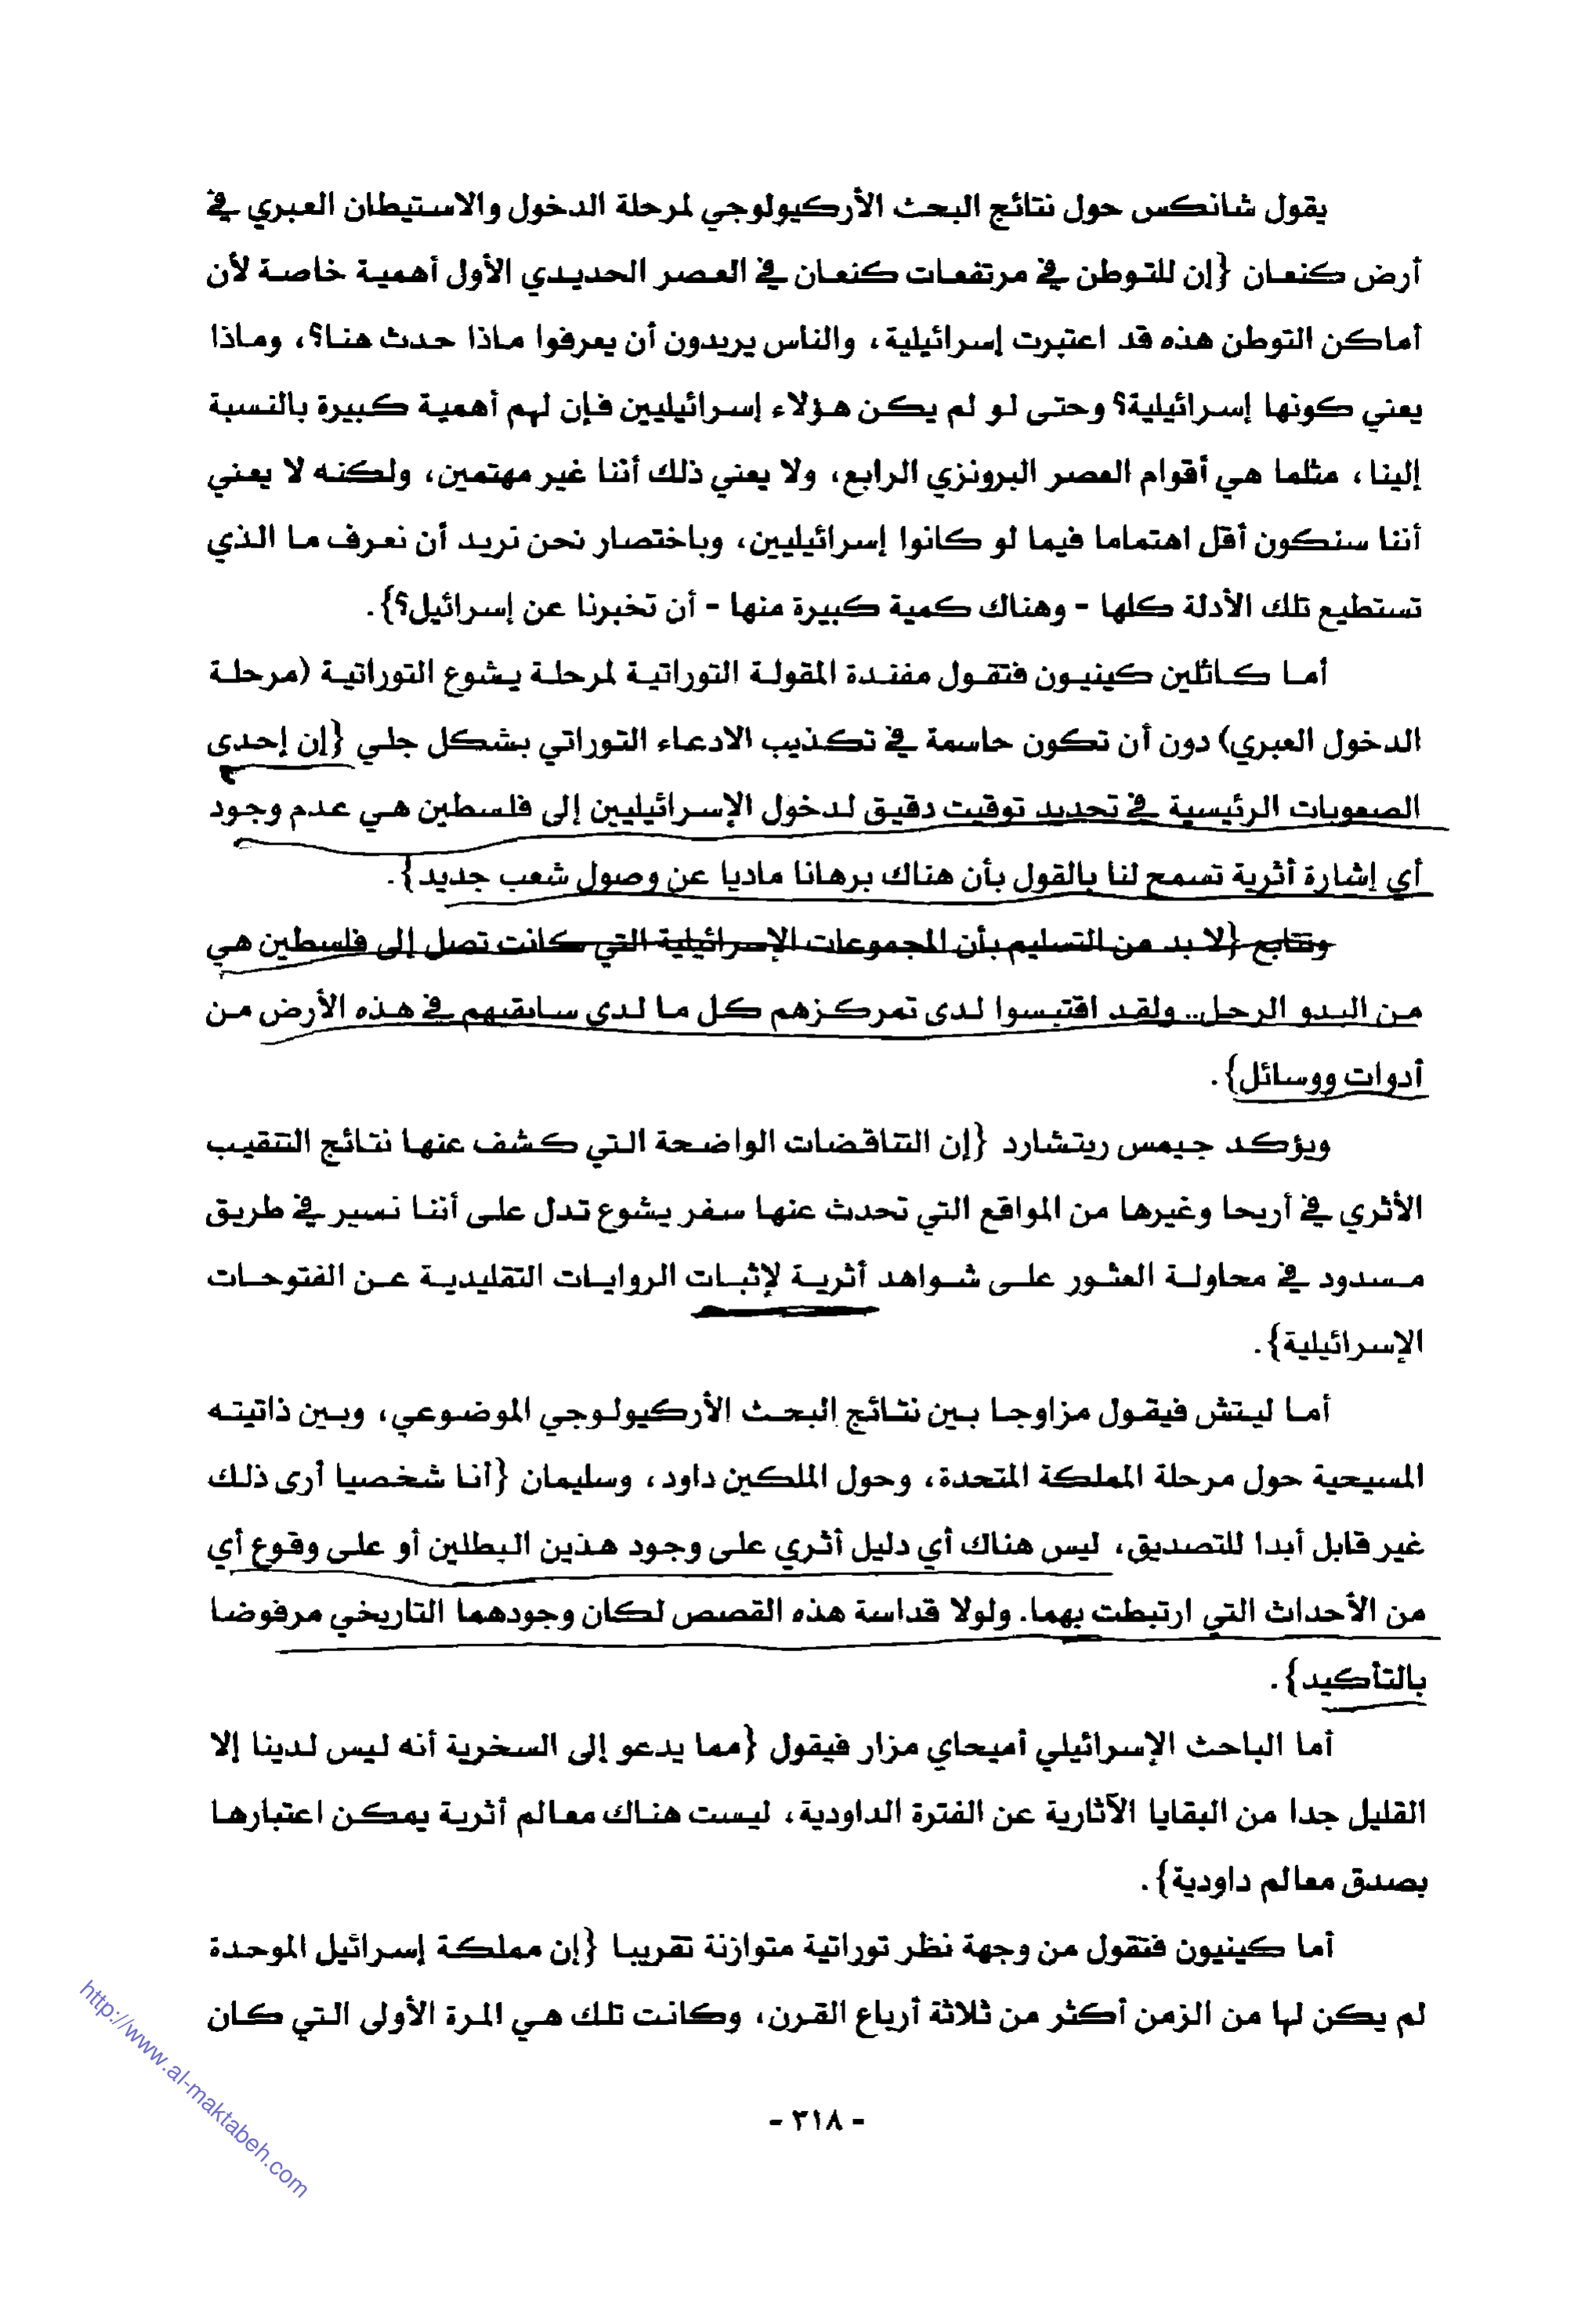 يقول شانكس حول نتائج البحث الأركيولوجي لمرحلة الدخول والاستيطان العبري في
أرض كنعان {إن للتوطن في مرتفعات كنعان في العصر الحديدي الأول أهمية خاصة لأن
أماكن التوطن هذه قد اعتبرت إسرائيلية، والناس يريدون أن يعرفوا ماذا حدث هنا؟، وماذا
يعني كونها إسرائيلية؟ وحتى لو لم يكن هؤلاء إسرائيليين فإن لهم أهمية كبيرة بالنسبة
إلينا، مثلما هي أقوام العصر البرونزي الرابع، ولا يعني ذلك أننا غير مهتمين، ولكنه لا يعني
أننا سنكون أقل اهتماما فيما لو كانوا إسرائيليين، وباختصار نحن نريد أن نعرف ما الذي
تستطيع تلك الأدلة كلها - وهناك كمية كبيرة منها - أن تخبرنا عن إسرائيل؟}.
أما كاثلين كينيون فتقول مفندة المقولة التوراتية لمرحلة يشوع التوراتية (مرحلة
الدخول العبري) دون أن تكون حاسمة في تكذيب الادعاء التوراتي بشكل جلي {إن إحدى
الصعوبات الرئيسية في تحديد توقيت دقيق لدخول الإسرائيليين إلى فلسطين هي عدم وجود
أي إشارة أثرية تسمح لنا بالقول بأن هناك برهانا ماديا عن وصول شعب جديد}.
وتتابع {لا بد من التسليم بأن المجموعات الإسرائيلية التي كانت تصل إلى فلسطين هي
من البدو الرحل.. ولقد اقتبسوا لدى تمركزهم كل ما لدى سابقيهم في هذه الأرض من
أدوات ووسائل}.
ويؤكد جيمس ريتشارد {إن التناقضات الواضحة التي كشف عنها نتائج التنقيب
الأثري في أريحا وغيرها من المواقع التي تحدث عنها سفر يشوع تدل على أننا نسير في طريق
مسدود في محاولة العثور على شواهد أثرية لإثبات الروايات التقليدية عن الفتوحات
الإسرائيلية}.
أما ليتش فيقول مزاوجا بين نتائج البحث الأركيولوجي الموضوعي، وبين ذاتيته
المسيحية حول مرحلة المملكة المتحدة، وحول الملكين داود، وسليمان {أنا شخصيا أرى ذلك
غير قابل أبدا للتصديق، ليس هناك أي دليل أثري على وجود هذين البطلين أو على وقوع أي
من الأحداث التي ارتبطت بهما. ولولا قداسة هذه القصص لكان وجودهما التاريخي مرفوضا
بالتأكيد}.
أما الباحث الإسرائيلي أميحاي مزار فيقول {مما يدعو إلى السخرية أنه ليس لدينا إلا
القليل جدا من البقايا الآثارية عن الفترة الداودية، ليست هناك معالم أثرية يمكن اعتبارها
بصدق معالم داودية}.
أما كينيون فتقول من وجهة نظر توراتية متوازنة تقريبا {إن مملكة إسرائيل الموحدة
لم يكن لها من الزمن أكثر من ثلاثة أرباع القرن، وكانت تلك هي المرة الأولى التي كان
- ٣١٨ -
http://www.al-maktabeh.com